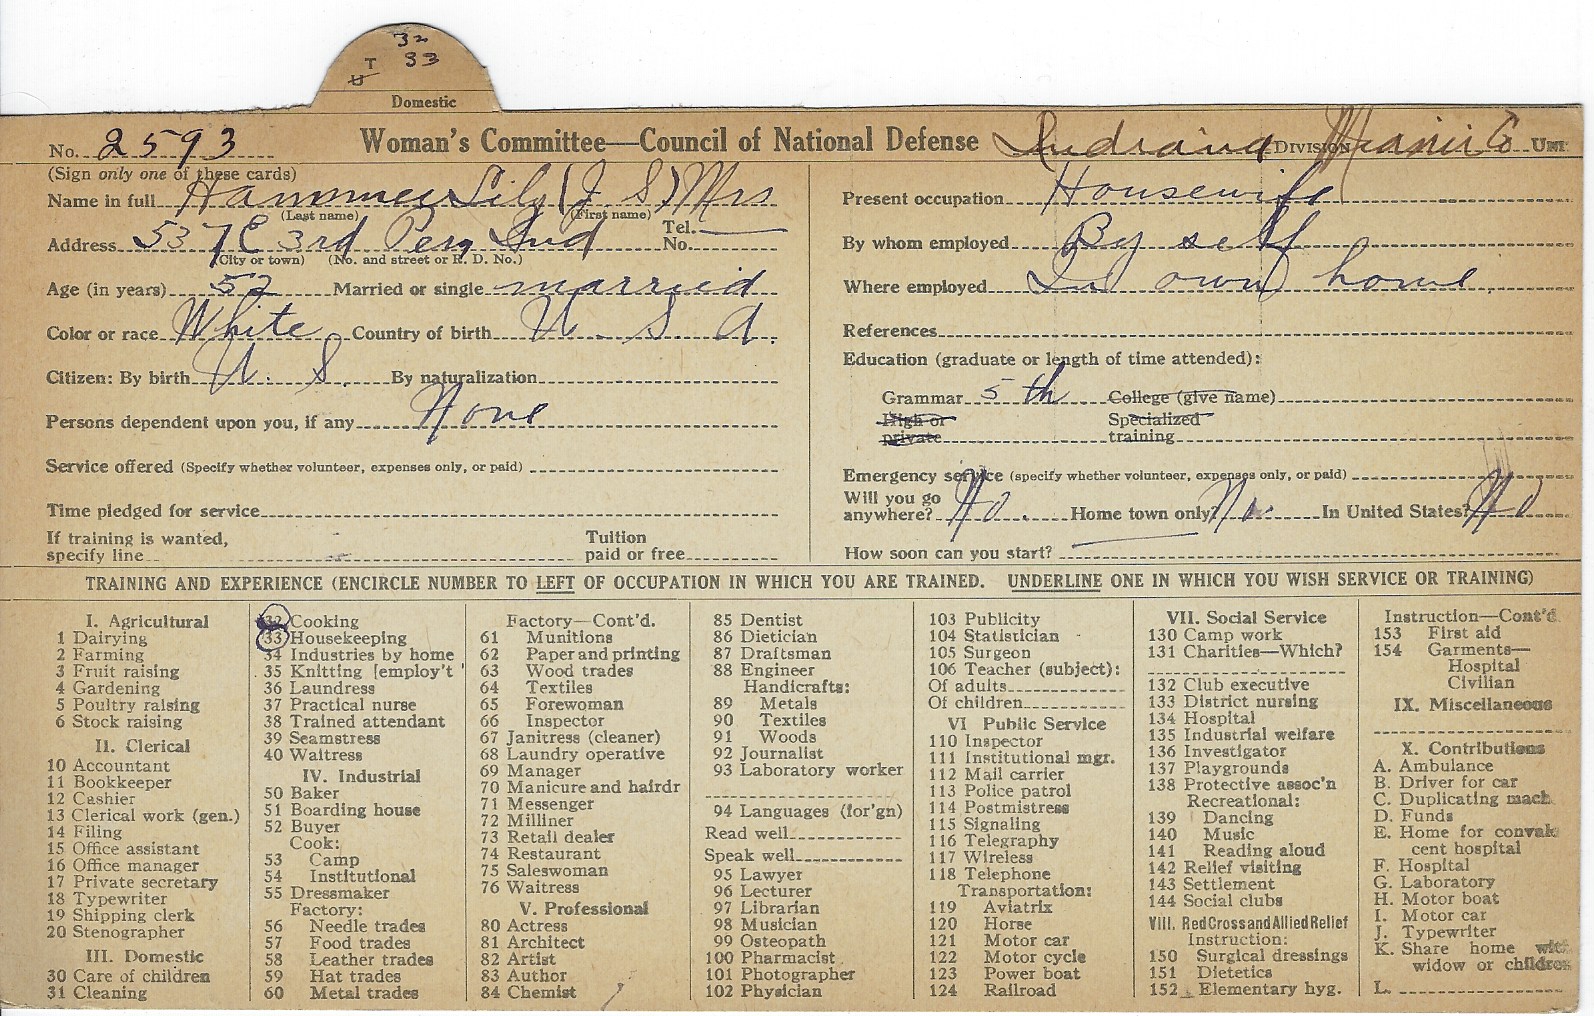 32
T 33
U
Domestic
No. 2593 Woman's Committee—Council of National Defense Indiana DIVISION Miami Co UNI
(Sign only one of these cards)
Name in full Hammer Lily (J S) Mrs
(Last name) (First name)
Address 537 E 3rd Peru Ind Tel. No.
(City or town) (No. and street or R. D. No.)
Age (in years) 52 Married or single married
Color or race White Country of birth U. S. A.
Citizen: By birth U. S. By naturalization
Persons dependent upon you, if any None
Service offered (Specify whether volunteer, expenses only, or paid)
Time pledged for service
If training is wanted, specify line Tuition paid or free
Present occupation Housewife
By whom employed By self
Where employed In own home
References
Education (graduate or length of time attended):
Grammar 5th College (give name)
High or private Specialized training
Emergency service (specify whether volunteer, expenses only, or paid)
Will you go anywhere? No. Home town only? No. In United States? No
How soon can you start?
TRAINING AND EXPERIENCE (ENCIRCLE NUMBER TO LEFT OF OCCUPATION IN WHICH YOU ARE TRAINED. UNDERLINE ONE IN WHICH YOU WISH SERVICE OR TRAINING)
I. Agricultural
1 Dairying
2 Farming
3 Fruit raising
4 Gardening
5 Poultry raising
6 Stock raising
II. Clerical
10 Accountant
11 Bookkeeper
12 Cashier
13 Clerical work (gen.)
14 Filing
15 Office assistant
16 Office manager
17 Private secretary
18 Typewriter
19 Shipping clerk
20 Stenographer
III. Domestic
30 Care of children
31 Cleaning
32 Cooking
33 Housekeeping
34 Industries by home
35 Knitting [employ't
36 Laundress
37 Practical nurse
38 Trained attendant
39 Seamstress
40 Waitress
IV. Industrial
50 Baker
51 Boarding house
52 Buyer
Cook:
53 Camp
54 Institutional
55 Dressmaker
Factory:
56 Needle trades
57 Food trades
58 Leather trades
59 Hat trades
60 Metal trades
Factory—Cont'd.
61 Munitions
62 Paper and printing
63 Wood trades
64 Textiles
65 Forewoman
66 Inspector
67 Janitress (cleaner)
68 Laundry operative
69 Manager
70 Manicure and hairdr
71 Messenger
72 Milliner
73 Retail dealer
74 Restaurant
75 Saleswoman
76 Waitress
V. Professional
80 Actress
81 Architect
82 Artist
83 Author
84 Chemist
85 Dentist
86 Dietician
87 Draftsman
88 Engineer
Handicrafts:
89 Metals
90 Textiles
91 Woods
92 Journalist
93 Laboratory worker
94 Languages (for'gn)
Read well
Speak well
95 Lawyer
96 Lecturer
97 Librarian
98 Musician
99 Osteopath
100 Pharmacist
101 Photographer
102 Physician
103 Publicity
104 Statistician
105 Surgeon
106 Teacher (subject):
Of adults
Of children
VI Public Service
110 Inspector
111 Institutional mgr.
112 Mail carrier
113 Police patrol
114 Postmistress
115 Signaling
116 Telegraphy
117 Wireless
118 Telephone
Transportation:
119 Aviatrix
120 Horse
121 Motor car
122 Motor cycle
123 Power boat
124 Railroad
VII. Social Service
130 Camp work
131 Charities—Which?
132 Club executive
133 District nursing
134 Hospital
135 Industrial welfare
136 Investigator
137 Playgrounds
138 Protective assoc'n
Recreational:
139 Dancing
140 Music
141 Reading aloud
142 Relief visiting
143 Settlement
144 Social clubs
VIII. Red Cross and Allied Relief
Instruction:
150 Surgical dressings
151 Dietetics
152 Elementary hyg.
Instruction—Cont'd.
153 First aid
154 Garments—
Hospital
Civilian
IX. Miscellaneous
X. Contributions
A. Ambulance
B. Driver for car
C. Duplicating mach
D. Funds
E. Home for convales
cent hospital
F. Hospital
G. Laboratory
H. Motor boat
I. Motor car
J. Typewriter
K. Share home with
widow or children
L.